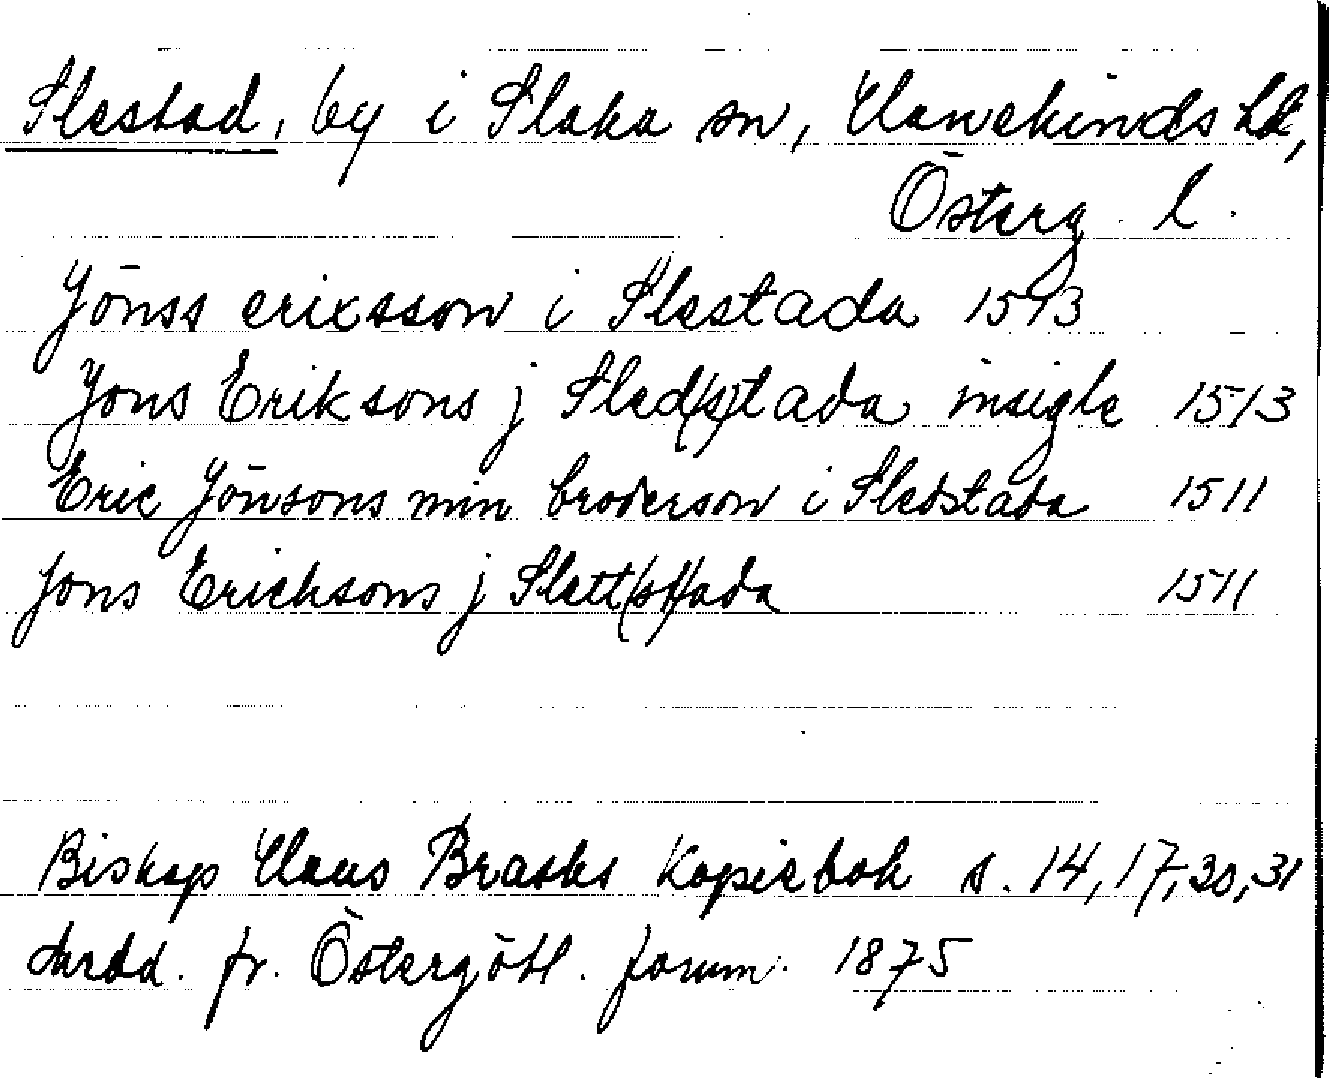 Slestad, by i Slaka sn, Hanekinds hd,
Österg. l.
Jönss ericsson i Slestada 1513
Jons Eriksons j Sled(s)tada insigle 1513
Eric Jönsons min broderson i Sledstada 1511
Jons Ericksons j Slett(st)ada 1511
Biskop Hans Brasks Kopiebok s. 14, 17, 30, 31
Medd. fr. Östergötl. fornm. 1875